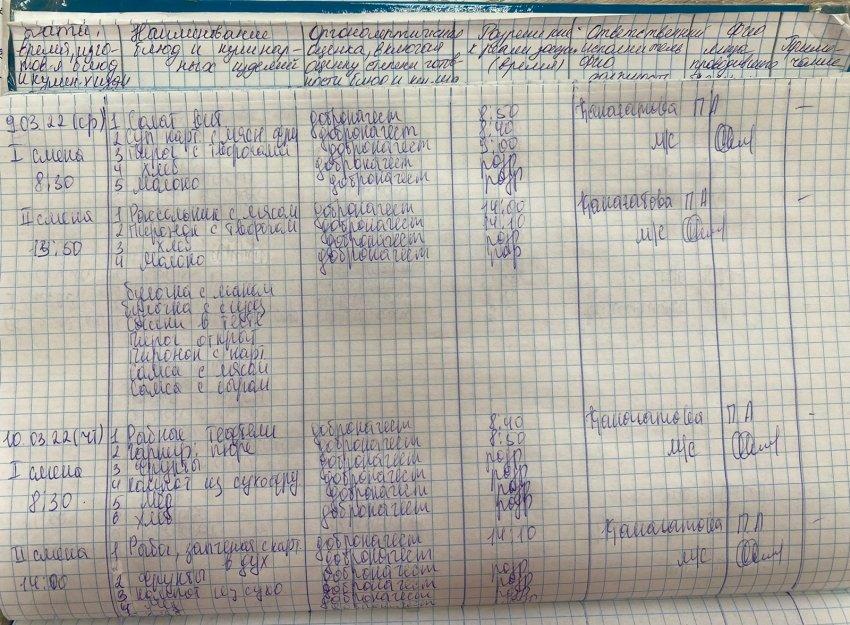 Наименование блюд и кулинарных изделий
Органолептическая оценка, включая оценку степени готовности блюд и кул.
Разрешение к реализации (время)
Ответственный исполнитель ФИО
ФИО лица проводившего
Примечание
9.03.22 (ср) 1 Салат вит доброкачест 8:50 П А –
2 Суп карт с мясн фри доброкачест 8:40
I смена 3 Пирог с творогом доброкачест 9:00 м/с
4 хлеб доброкачест разр
8:30 5 молоко доброкачест разр
II смена 1 Рассольник с мясом доброкачест 14:00 П А –
2 Пирожок с творогом доброкачест 14:10 м/с
13:50 3 хлеб доброкачест разр
4 молоко доброкачест разр
булочка с маком
булочка с
Сосиски в тесте
Пирог открыт
Пирожок с карт
Самса с мясом
Самса с сыром
10.03.22 (чт) 1 Рабные тефтели доброкачест 8:40 П А –
2 гарнир. пюре доброкачест 8:50
I смена 3 фрукты доброкачест разр м/с
4 компот из сухофру доброкачест разр
8:30 5 мёд доброкачест разр
6 хлеб доброкачест разр
II смена 1 Рыба, запечная с карт доброкачест 14:10 П А –
в дух доброкачест м/с
14:00 2 фрукты доброкачест разр
3 компот из сухо доброкачест разр
4 хлеб доброкачест разр